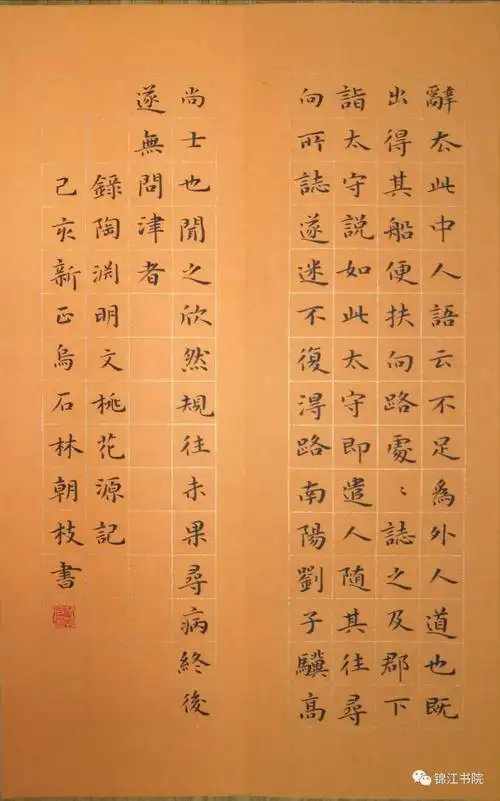 辭去此中人語云不足為外人道也既
出得其船便扶向路處〻誌之及郡下
詣太守說如此太守即遣人随其往尋
向所誌遂迷不復得路南陽劉子驥高
尚士也聞之欣然規往未果尋病終後
遂無問津者
錄陶渊明文桃花源記
己亥新正烏石林朝枝書
锦江书院